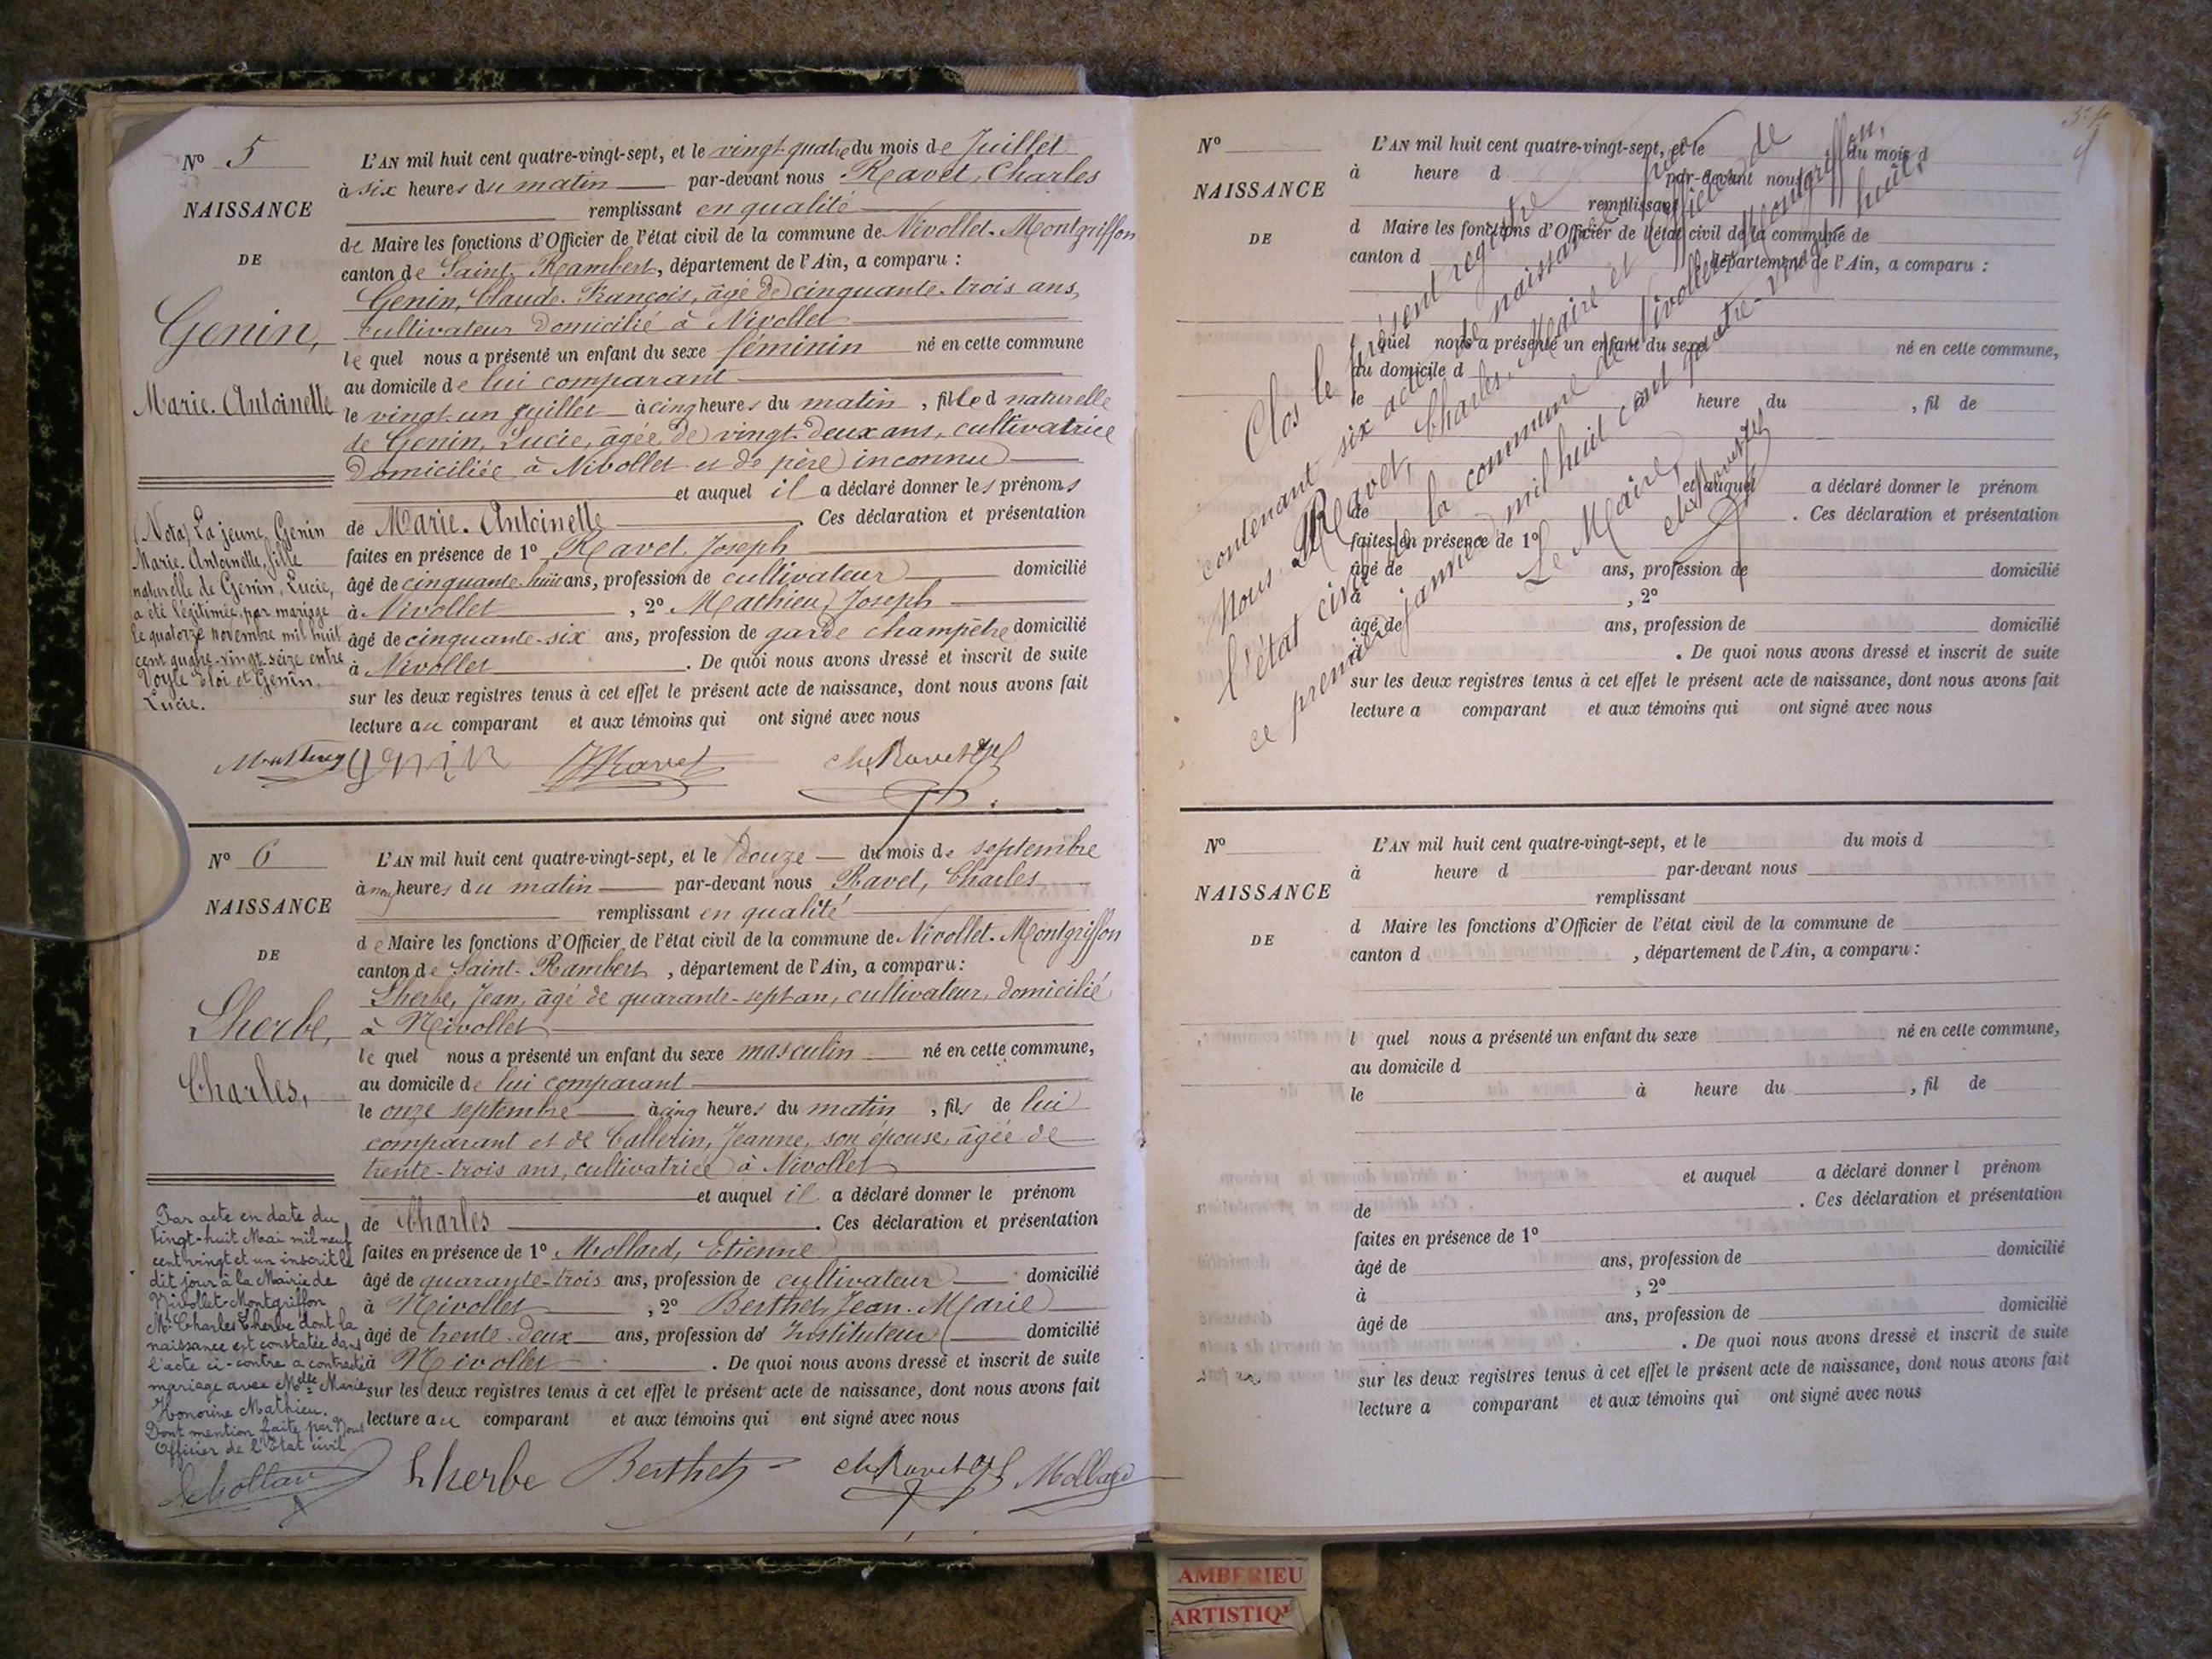 N° 5
NAISSANCE
DE
Genin,
Marie-Antoinette
(Nota) La jeune Genin
Marie-Antoinette, fille
naturelle de Genin, Lucie,
a été légitimée par mariage
le quatorze novembre mil huit
cent quatre-vingt-seize entre
Voyle Eloi et Genin
Lucie.
L'AN mil huit cent quatre-vingt-sept, et le vingt-quatre du mois de Juillet
à six heures du matin par-devant nous Ravet, Charles
remplissant en qualité
de Maire les fonctions d'Officier de l'état civil de la commune de Nivollet-Montgriffon
canton de Saint-Rambert, département de l'Ain, a comparu :
Genin, Claude-François, âgé de cinquante-trois ans,
cultivateur domicilié à Nivollet
le quel nous a présenté un enfant du sexe féminin né en cette commune
au domicile de lui comparant
le vingt-un Juillet à cinq heures du matin, fille d naturelle
de Genin, Lucie, âgée de vingt-deux ans, cultivatrice
domiciliée à Nivollet et de père inconnu
et auquel il a déclaré donner les prénoms
de Marie-Antoinette. Ces déclaration et présentation
faites en présence de 1° Ravet, Joseph
âgé de cinquante-huit ans, profession de cultivateur domicilié
à Nivollet, 2° Mathieu, Joseph
âgé de cinquante-six ans, profession de garde champêtre domicilié
à Nivollet. De quoi nous avons dressé et inscrit de suite
sur les deux registres tenus à cet effet le présent acte de naissance, dont nous avons fait
lecture au comparant et aux témoins qui ont signé avec nous
Genin JRavet ch. Ravet
N° 6
NAISSANCE
DE
Lherbe,
Charles,
Par acte en date du
vingt-huit Mai mil neuf
cent vingt et un inscrit le
dit jour à la Mairie de
Nivollet-Montgriffon
Mr Charles Lherbe dont la
naissance est constatée dans
l'acte ci-contre a contracté
mariage avec Melle Marie
Honorine Mathieu.
Dont mention faite par Nous
Officier de l'Etat civil
L'AN mil huit cent quatre-vingt-sept, et le douze du mois de septembre
à neuf heures du matin par-devant nous Ravet, Charles
remplissant en qualité
de Maire les fonctions d'Officier de l'état civil de la commune de Nivollet-Montgriffon
canton de Saint-Rambert, département de l'Ain, a comparu :
Lherbe, Jean, âgé de quarante-sept an, cultivateur, domicilié
à Nivollet
le quel nous a présenté un enfant du sexe masculin né en cette commune,
au domicile de lui comparant
le onze septembre à cinq heures du matin, fils de lui
comparant et de Callerin, Jeanne, son épouse, âgée de
trente-trois ans, cultivatrice à Nivollet
et auquel il a déclaré donner le prénom
de Charles. Ces déclaration et présentation
faites en présence de 1° Mollard, Etienne
âgé de quarante-trois ans, profession de cultivateur domicilié
à Nivollet, 2° Berthet, Jean-Marie
âgé de trente-deux ans, profession d' Instituteur domicilié
à Nivollet. De quoi nous avons dressé et inscrit de suite
sur les deux registres tenus à cet effet le présent acte de naissance, dont nous avons fait
lecture au comparant et aux témoins qui ont signé avec nous
Lherbe Berthet ch. Ravet Mollard
N°
NAISSANCE
DE
L'AN mil huit cent quatre-vingt-sept, et le du mois d
à heure d par-devant nous
remplissant
d Maire les fonctions d'Officier de l'état civil de la commune de
canton d , département de l'Ain, a comparu :
l quel nous a présenté un enfant du sexe né en cette commune,
au domicile d
le à heure du , fil de
et auquel a déclaré donner le prénom
de . Ces déclaration et présentation
faites en présence de 1°
âgé de ans, profession de domicilié
à , 2°
âgé de ans, profession de domicilié
à . De quoi nous avons dressé et inscrit de suite
sur les deux registres tenus à cet effet le présent acte de naissance, dont nous avons fait
lecture a comparant et aux témoins qui ont signé avec nous
Clos le présent registre
contenant six actes de naissance
Nous Ravet, Charles, Maire et officier de
l'état civil de la commune de Nivollet-Montgriffon,
ce premier janvier mil huit cent quatre-vingt-huit.
Le Maire,
ch. Ravet
N°
NAISSANCE
DE
L'AN mil huit cent quatre-vingt-sept, et le du mois d
à heure d par-devant nous
remplissant
d Maire les fonctions d'Officier de l'état civil de la commune de
canton d , département de l'Ain, a comparu :
l quel nous a présenté un enfant du sexe né en cette commune,
au domicile d
le à heure du , fil de
et auquel a déclaré donner l prénom
de . Ces déclaration et présentation
faites en présence de 1°
âgé de ans, profession de domicilié
à , 2°
âgé de ans, profession de domicilié
. De quoi nous avons dressé et inscrit de suite
sur les deux registres tenus à cet effet le présent acte de naissance, dont nous avons fait
lecture a comparant et aux témoins qui ont signé avec nous
AMBERIEU
ARTISTIQ